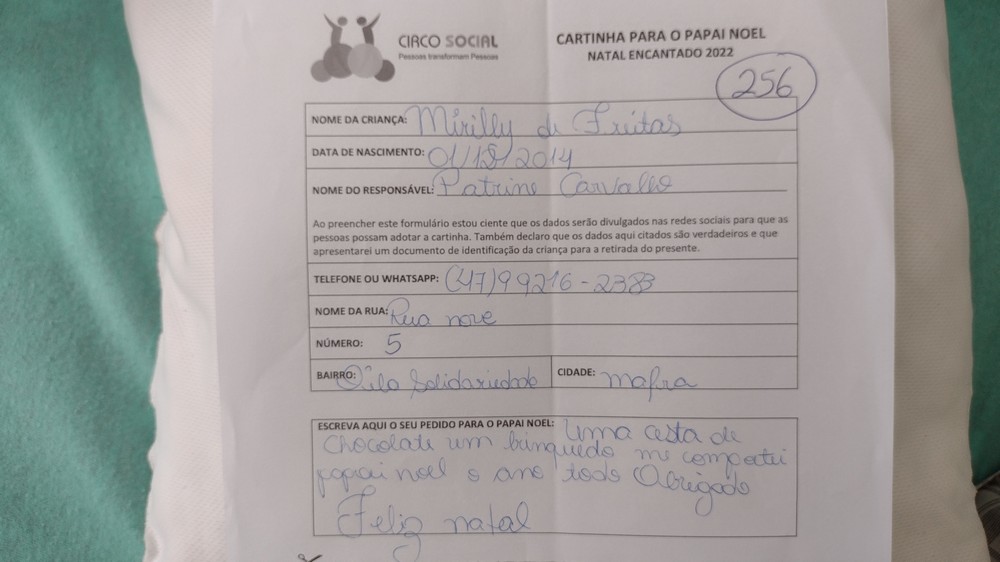 CIRCO SOCIAL
Pessoas transformam Pessoas
CARTINHA PARA O PAPAI NOEL
NATAL ENCANTADO 2022
256
NOME DA CRIANÇA: Mirilly de Freitas
DATA DE NASCIMENTO: 01/12/2014
NOME DO RESPONSÁVEL: Patrine Carvalho
Ao preencher este formulário estou ciente que os dados serão divulgados nas redes sociais para que as
pessoas possam adotar a cartinha. Também declaro que os dados aqui citados são verdadeiros e que
apresentarei um documento de identificação da criança para a retirada do presente.
TELEFONE OU WHATSAPP: (47)99216-2383
NOME DA RUA: Rua nove
NÚMERO: 5
BAIRRO: Solidariedade
CIDADE: mafra
ESCREVA AQUI O SEU PEDIDO PARA O PAPAI NOEL: Uma cesta de
Chocolate um brinquedo me comportei
papai noel o ano todo Obrigado
Feliz natal